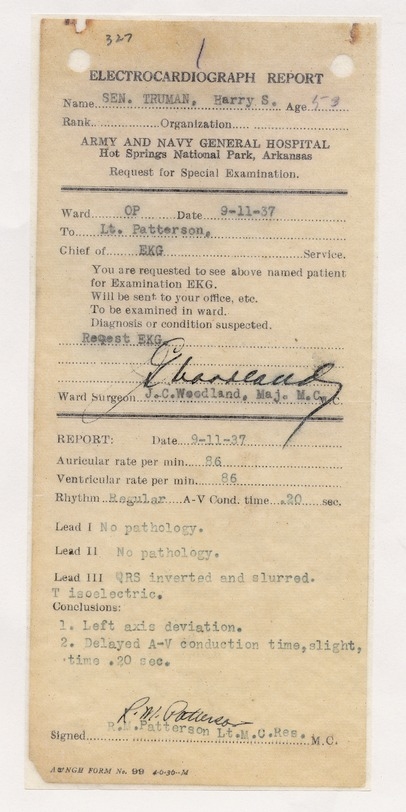 327
1
ELECTROCARDIOGRAPH REPORT
Name SEN. TRUMAN, Harry S. Age 53
Rank Organization
ARMY AND NAVY GENERAL HOSPITAL
Hot Springs National Park, Arkansas
Request for Special Examination.
Ward OP Date 9-11-37
To Lt. Patterson,
Chief of EKG Service.
You are requested to see above named patient
for Examination EKG.
Will be sent to your office, etc.
To be examined in ward.
Diagnosis or condition suspected.
Reqest EKG
Ward Surgeon J.C.Woodland, Maj. M.C.
REPORT: Date 9-11-37
Auricular rate per min. 86
Ventricular rate per min. 86
Rhythm Regular A-V Cond. time .20 sec.
Lead I No pathology.
Lead II No pathology.
Lead III QRS inverted and slurred.
T isoelectric.
Conclusions:
1. Left axis deviation.
2. Delayed A-V conduction time,slight,
time .20 sec.
R.M.Patterson
Signed R.M.Patterson Lt.M.C.Res. M.C.
A&NGH FORM No. 99